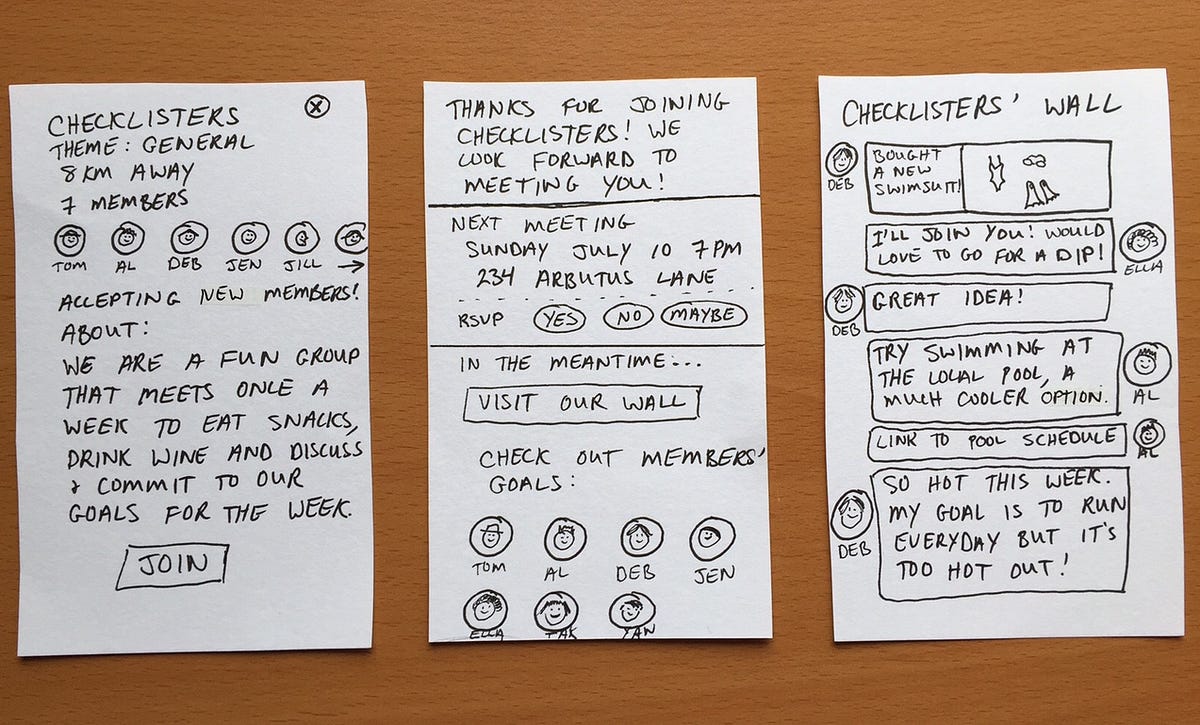 CHECKLISTERS
THEME: GENERAL
8 KM AWAY
7 MEMBERS
TOM AL DEB JEN JILL
ACCEPTING NEW MEMBERS!
ABOUT:
WE ARE A FUN GROUP
THAT MEETS ONCE A
WEEK TO EAT SNACKS,
DRINK WINE AND DISCUSS
& COMMIT TO OUR
GOALS FOR THE WEEK.
JOIN
THANKS FOR JOINING
CHECKLISTERS! WE
LOOK FORWARD TO
MEETING YOU!
NEXT MEETING
SUNDAY JULY 10 7PM
234 ARBUTUS LANE
RSVP YES NO MAYBE
IN THE MEANTIME...
VISIT OUR WALL
CHECK OUT MEMBERS'
GOALS:
TOM AL DEB JEN
ELLA YAN
CHECKLISTERS' WALL
BOUGHT
A NEW
SWIMSUIT!
DEB
I'LL JOIN YOU! WOULD
LOVE TO GO FOR A DIP!
ELLA
GREAT IDEA!
DEB
TRY SWIMMING AT
THE LOCAL POOL, A
MUCH COOLER OPTION.
AL
LINK TO POOL SCHEDULE
AL
SO HOT THIS WEEK.
MY GOAL IS TO RUN
EVERYDAY BUT IT'S
TOO HOT OUT!
DEB